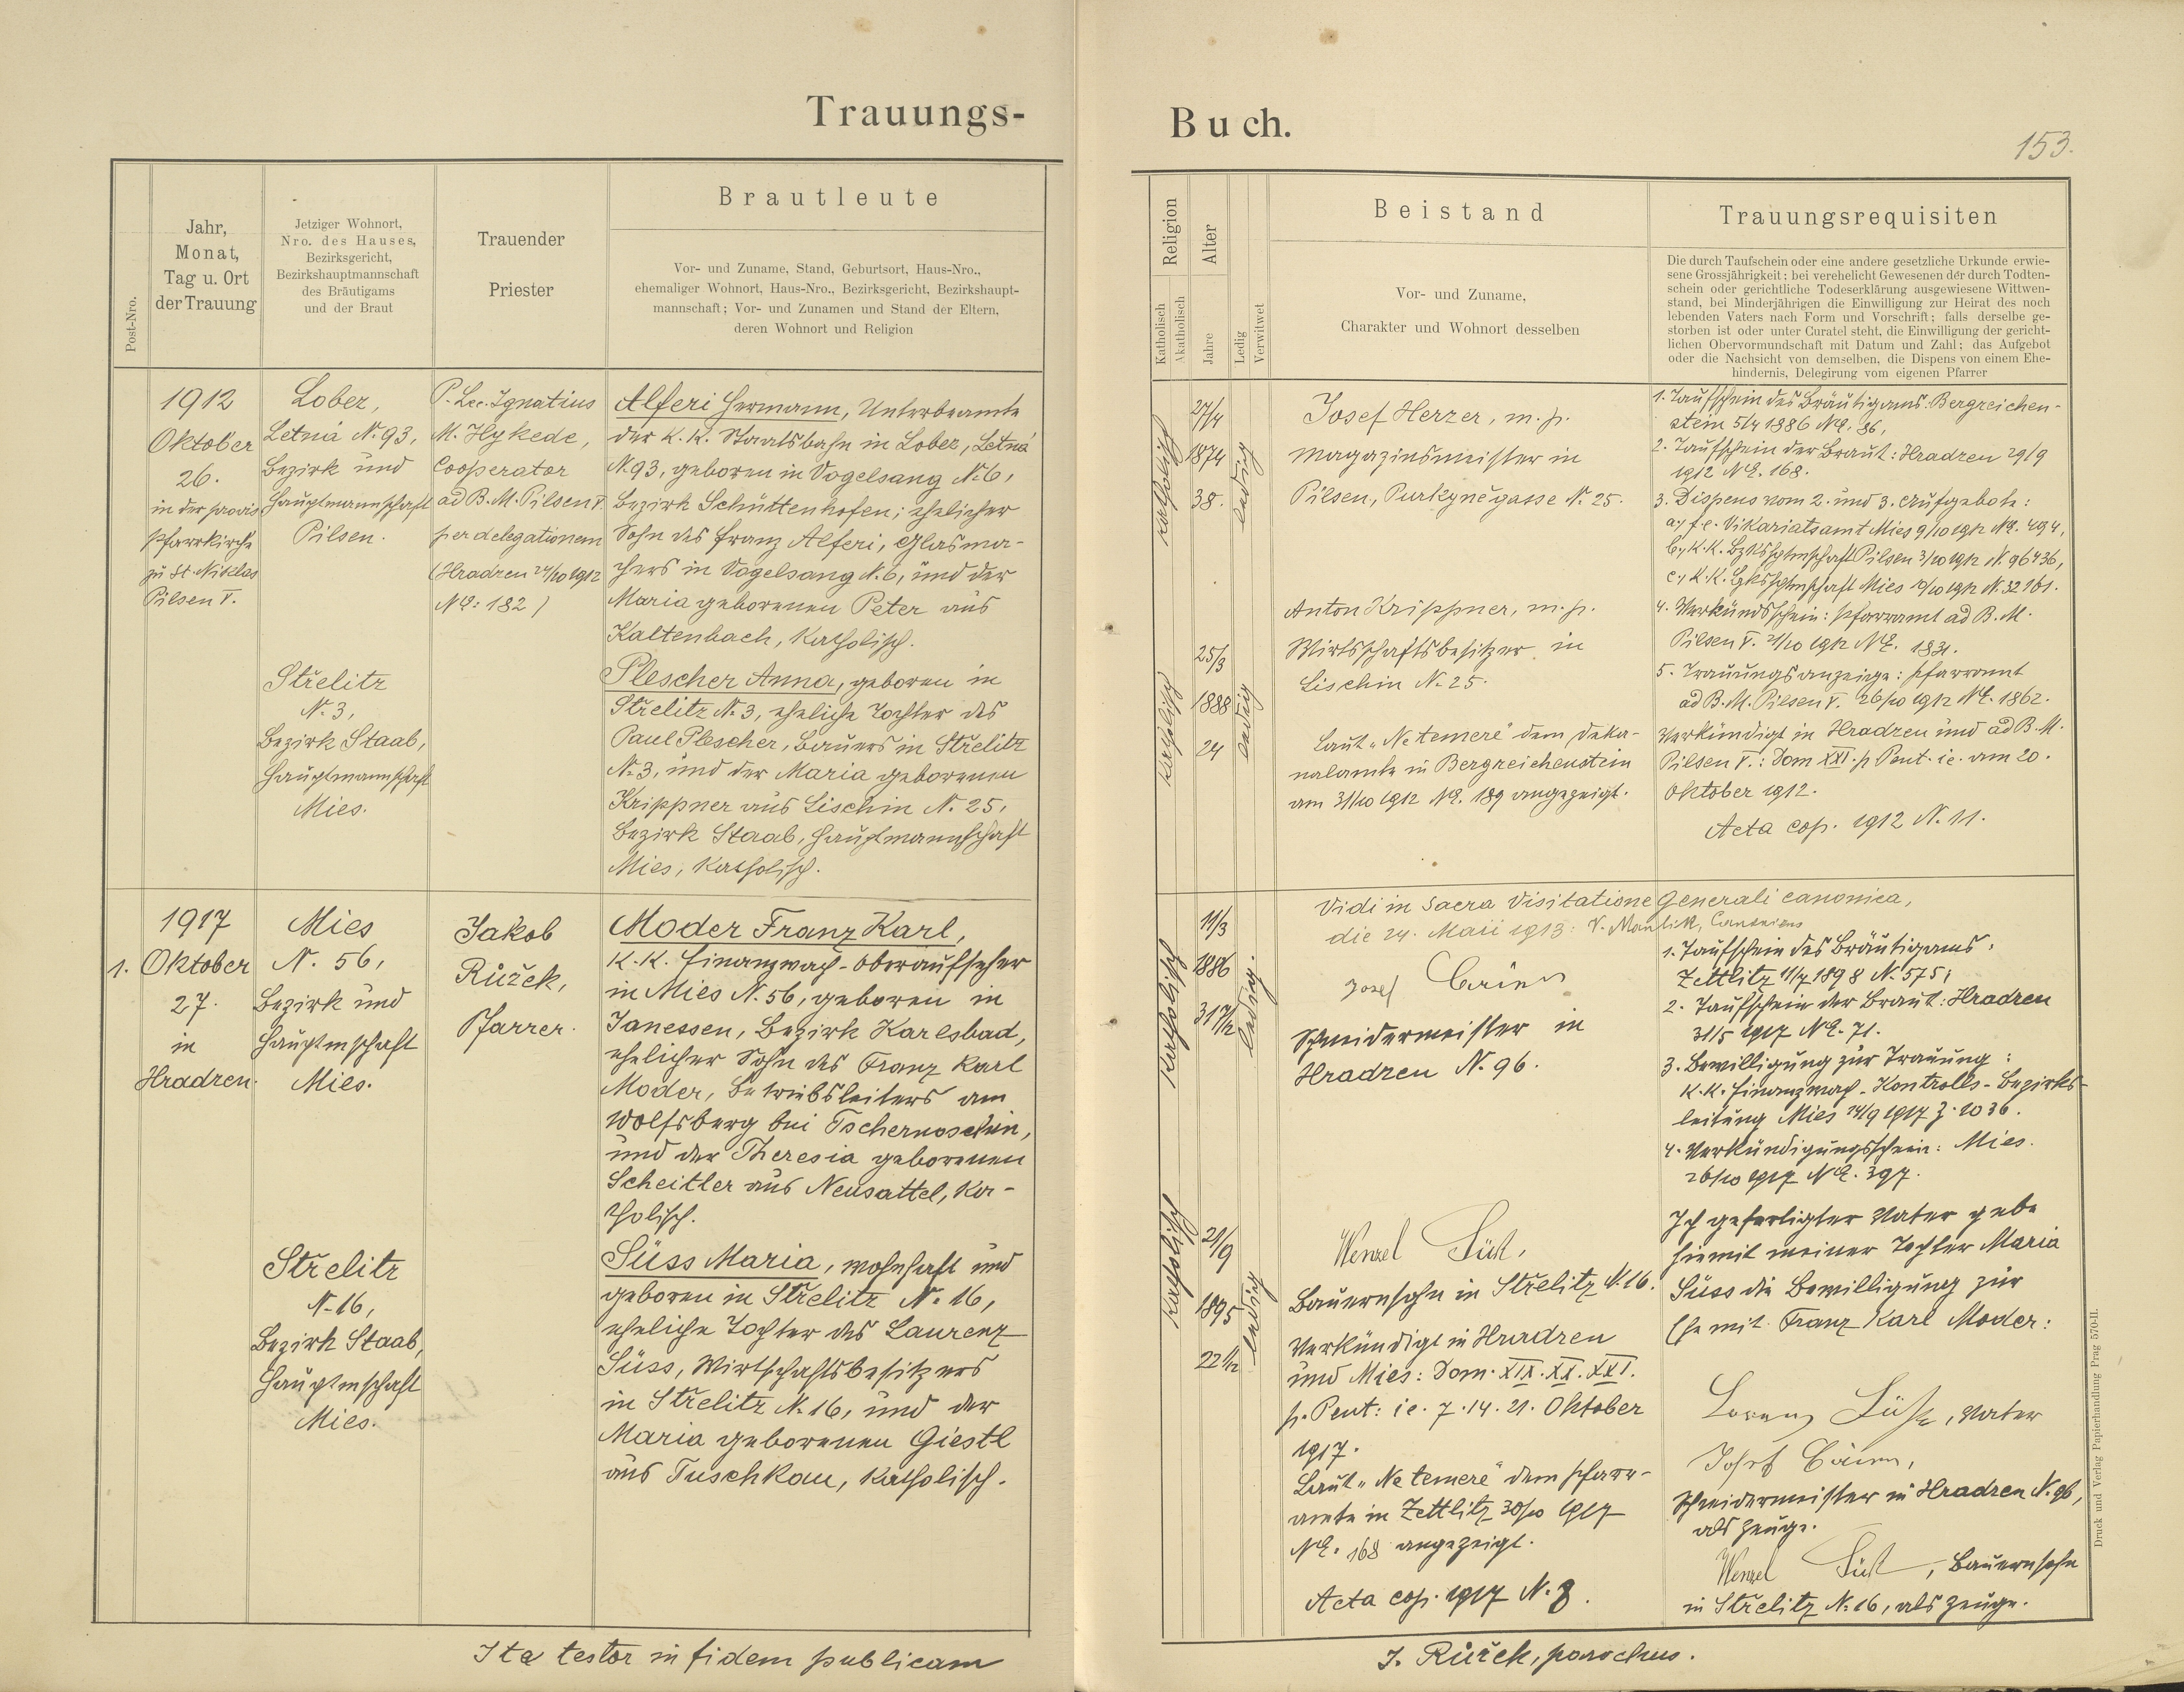 Trauungs-
Post-Nro.
Jahr,
Monat,
Tag u. Ort
der Trauung
Jetziger Wohnort,
Nro. des Hauses,
Bezirksgericht,
Bezirkshauptmannschaft
des Bräutigams
und der Braut
Trauender
Priester
Brautleute
Vor- und Zuname, Stand, Geburtsort, Haus-Nro.,
ehemaliger Wohnort, Haus-Nro., Bezirksgericht, Bezirkshaupt-
mannschaft; Vor- und Zunamen und Stand der Eltern,
deren Wohnort und Religion
1912
Oktober
26.
in der provis.
Pfarrkirche
zu St. Niklas
Pilsen V.
Lober,
Letná N. 93,
Bezirk und
Hauptmannschaft
Pilsen.
P. Lec. Ignatius
M. Hykede,
Cooperator
ad B. M. Pilsen V.
per delegationem
(Hradzen 24/10 1912
NE: 182)
Alferi Hermann, Unterbeamte
der K. K. Staatsbahn in Lober, Letná
N. 93, geboren in Vogelsang N. 6,
Bezirk Schüttenhofen; ehelicher
Sohn des Franz Alferi, Glasma-
chers in Vogelsang N. 6, und der
Maria geborenen Peter aus
Kaltenbach, katholisch.
Střelitz
N. 3,
Bezirk Staab,
Hauptmannschaft
Mies.
Plescher Anna, geboren in
Střelitz N. 3, eheliche Tochter des
Paul Plescher, Bauers in Střelitz
N. 3, und der Maria geborenen
Krippner aus Lischin N. 25,
Bezirk Staab, Hauptmannschaft
Mies, katholisch.
1.
1917
Oktober
27.
in
Hradzen.
Mies
N. 56,
Bezirk und
Hauptmschaft
Mies.
Jakob
Růžek,
Pfarrer.
Moder Franz Karl,
K. K. Finanzwach-Oberaufseher
in Mies N. 56, geboren in
Janessen, Bezirk Karlsbad,
ehelicher Sohn des Franz Karl
Moder, Betriebsleiters am
Wolfsberg bei Tschernoschin,
und der Theresia geborenen
Scheitler aus Neusattel, ka-
tholisch.
Střelitz
N. 16,
Bezirk Staab,
Hauptmschaft
Mies.
Süss Maria, wohnhaft und
geboren in Střelitz N. 16,
eheliche Tochter des Laurenz
Süss, Wirtschaftsbesitzers
in Střelitz N. 16, und der
Maria geborenen Giestl
aus Tuschkau, katholisch.
Ita testor in fidem publicam
Buch.
153.
Religion
Katholisch
Akatholisch
Alter
Jahre
Ledig
Verwitwet
Beistand
Vor- und Zuname,
Charakter und Wohnort desselben
Trauungsrequisiten
Die durch Taufschein oder eine andere gesetzliche Urkunde erwie-
sene Grossjährigkeit; bei verehelicht Gewesenen der durch Todten-
schein oder gerichtliche Todeserklärung ausgewiesene Wittwen-
stand, bei Minderjährigen die Einwilligung zur Heirat des noch
lebenden Vaters nach Form und Vorschrift; falls derselbe ge-
storben ist oder unter Curatel steht, die Einwilligung der gericht-
lichen Obervormundschaft mit Datum und Zahl; das Aufgebot
oder die Nachsicht von demselben, die Dispens von einem Ehe-
hindernis, Delegirung vom eigenen Pfarrer
katholisch
27/4
1874
38.
ledig
Josef Herzer, m. p.
Magazinsmeister in
Pilsen, Purkyněgasse N. 25.
1. Taufschein des Bräutigams: Bergreichen-
stein 5/4 1886 NE. 86,
2. Taufschein der Braut: Hradzen 29/9
1912 NE. 168.
3. Dispens vom 2. und 3. Aufgebote:
a., f. e. Vikariatsamt Mies 9/10 1912 NE. 494,
b., K. K. Bzkshptmschaft Pilsen 3/10 1912 N. 96436,
c., K. K. Bzkshptmschaft Mies 10/10 1912 N. 32161.
4. Verkündschein: Pfarramt ad B. M.
Pilsen V. 21/10 1912 NE. 1831.
5. Trauungsanzeige: Pfarramt
ad B. M. Pilsen V. 26/10 1912 NE. 1862.
katholisch
25/3
1888
24
ledig
Anton Krippner, m. p.
Wirtschaftsbesitzer in
Lischin N. 25.
Laut "Ne temere" dem Deka-
nalamte in Bergreichenstein
am 31/10 1912 NE. 189 angezeigt.
Verkündigt in Hradzen und ad B. M.
Pilsen V.: Dom XXI. p Pent. ie. am 20.
Oktober 1912.
Acta cop. 1912 N. 11.
Vidi in sacra visitatione generali canonica,
die 24. Maii 1913: Canonicus
katholisch
11/3
1886
31 7/12
ledig.
Josef
Schneidermeister in
Hradzen N. 96.
1. Taufschein des Bräutigams:
Zettlitz 11/7 1898 N. 575;
2. Taufschein der Braut: Hradzen
31/5 1917 NE. 71.
3. Bewilligung zur Trauung:
K. K. Finanzwach-Kontrolls-Bezirks-
leitung Mies 14/9 1917 Z. 1036.
4. Verkündigungsschein: Mies.
26/10 1917 NE. 397.
katholisch
21/9
1895
22 1/12
ledig
Wenzel Süß,
Bauernsohn in Střelitz N. 16.
Verkündigt in Hradzen
und Mies: Dom. XIX. XX. XXI.
p. Pent: ie. 7. 14. 21. Oktober
1917.
Laut "Ne temere" dem Pfarr-
amte in Zettlitz 30/10 1917
NE. 168 angezeigt.
Acta cop. 1917 N. 8.
Ich gefertigter Vater gebe
hiemit meiner Tochter Maria
Süss die Bewilligung zur
Ehe mit Franz Karl Moder:
Lorenz Süß, Vater
Josef
Schneidermeister in Hradzen N. 96,
als Zeuge.
Wenzel Süß, Bauernsohn
in Střelitz N. 16, als Zeuge.
J. Růžek, parochus.
Druck und Verlag Papierhandlung Prag 570-II.